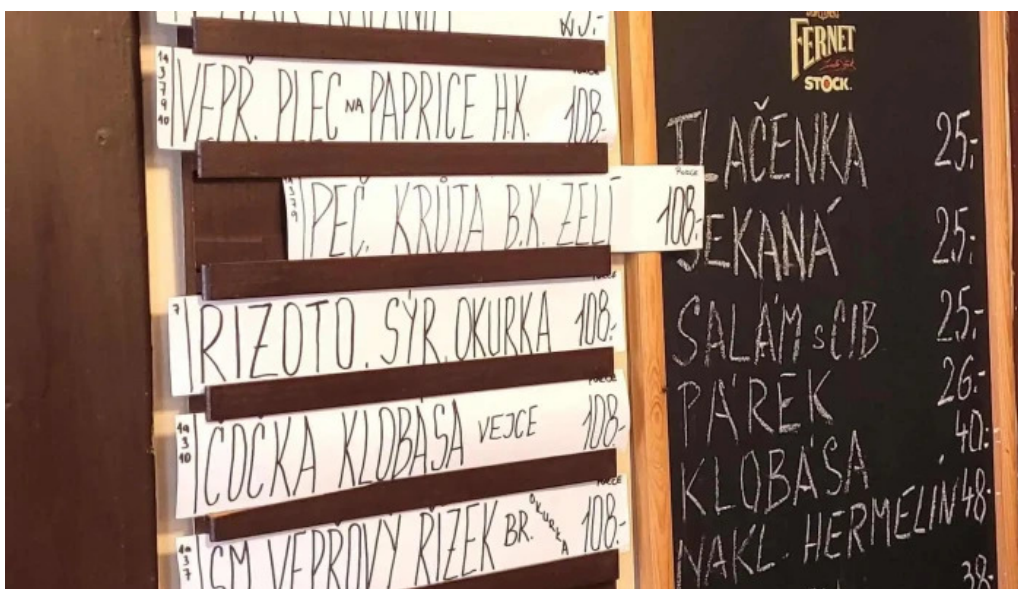 25.-
1a
3
7
9
10
VEPŘ. PLEC NA PAPRICE H.K. 108.-
3
7
9
PORCE
PEČ. KRŮTA B.K. ZELÍ 108.-
7
RIZOTO. SÝR. OKURKA 108.-
1a
3
10
PORCE
ČOČKA KLOBÁSA VEJCE 108.-
1a
3
7
PORCE
SM VEPŘOVÝ ŘÍZEK BR. OKURKA 108.-
FERNET
STOCK.
TLAČENKA 25,-
SEKANÁ 25,-
SALÁM s CIB 25,-
PÁREK 26,-
KLOBÁSA 40,-
NAKL. HERMELÍN 48,-
38,-